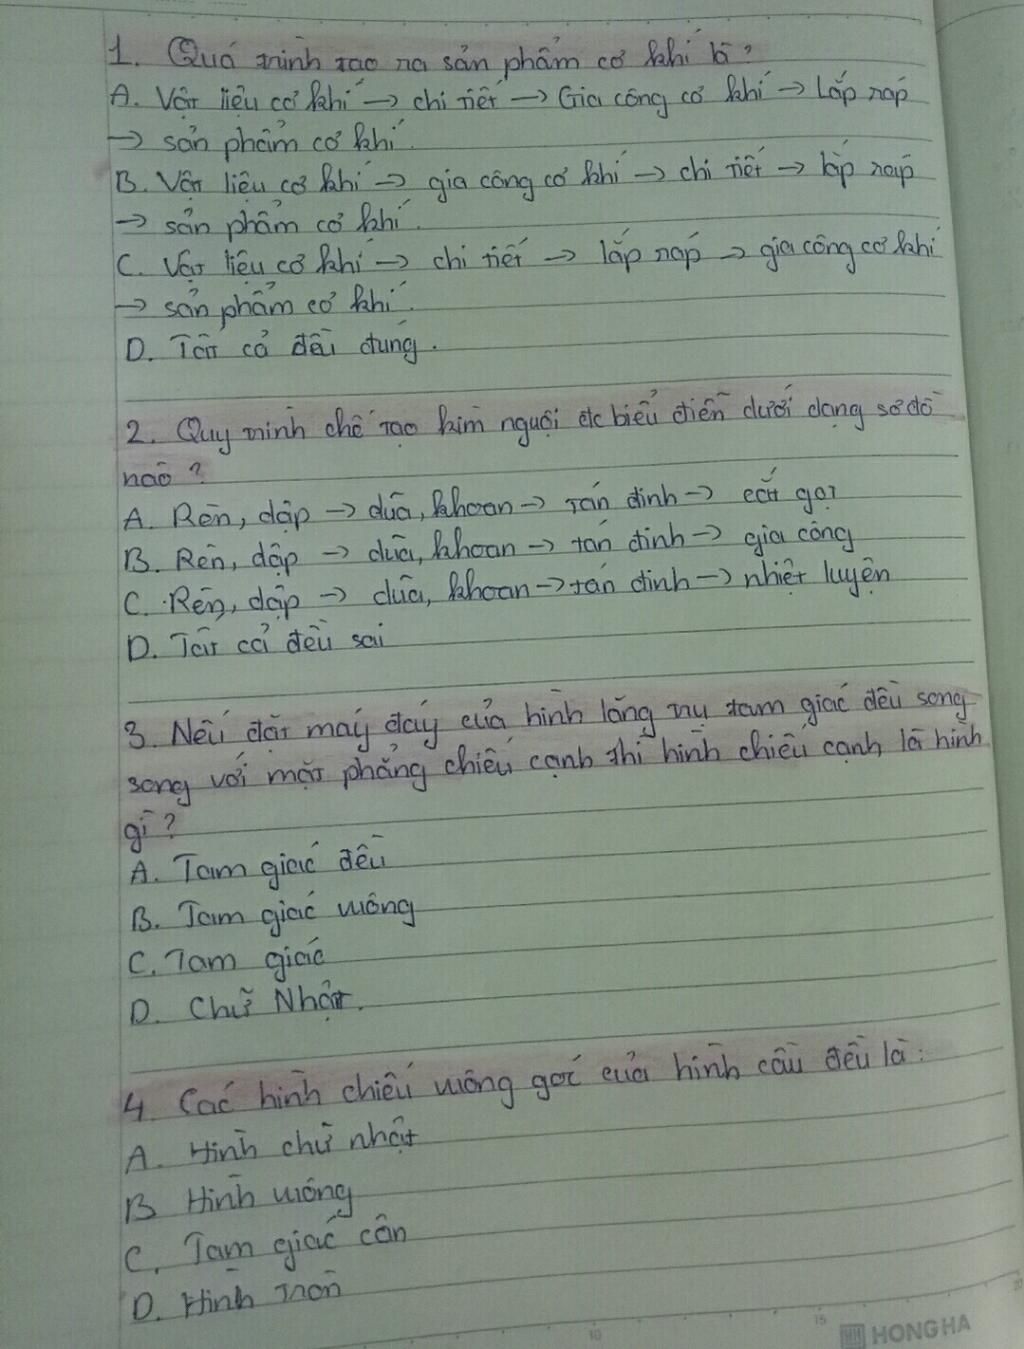 1. Quá trình tạo ra sản phẩm cơ khí là?
A. Vật liệu cơ khí → chi tiết → Gia công cơ khí → Lắp ráp
→ sản phẩm cơ khí.
B. Vật liệu cơ khí → gia công cơ khí → chi tiết → lắp ráp
→ sản phẩm cơ khí.
C. Vật liệu cơ khí → chi tiết → lắp ráp → gia công cơ khí
→ sản phẩm cơ khí.
D. Tất cả đều đúng.
2. Quy trình chế tạo kìm nguội đc biểu diễn dưới dạng sơ đồ
nào?
A. Rèn, dập → dũa, khoan → tán đinh → cắt gọt
B. Rèn, dập → dũa, khoan → tán đinh → gia công
C. Rèn, dập → dũa, khoan → tán đinh → nhiệt luyện
D. Tất cả đều sai
3. Nếu đặt máy đáy của hình lăng trụ tam giác đều song
song với mặt phẳng chiếu cạnh thì hình chiếu cạnh là hình
gì?
A. Tam giác đều
B. Tam giác vuông
C. Tam giác
D. Chữ Nhật.
4. Các hình chiếu vuông góc của hình cầu đều là:
A. Hình chữ nhật
B Hình vuông
C. Tam giác cân
D. Hình Tròn
10
15
HONG HA